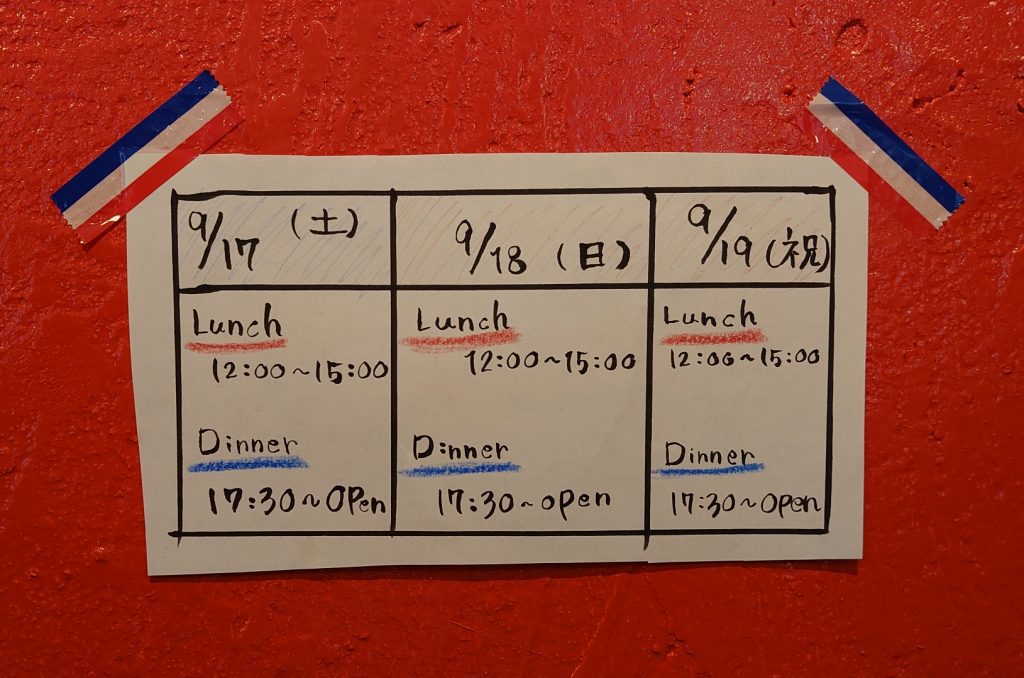 9/17 (土)
Lunch
12:00~15:00
Dinner
17:30~Open
9/18 (日)
Lunch
12:00~15:00
Dinner
17:30~open
9/19 (祝)
Lunch
12:00~15:00
Dinner
17:30~Open